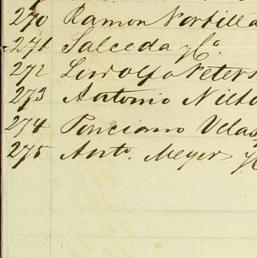 270 Ramon Portilla
271 Salceda y Ca.
272 Ludolfo Peters
273 Antonio
274 Ponciano Velas
275 Anto. Meyer y C